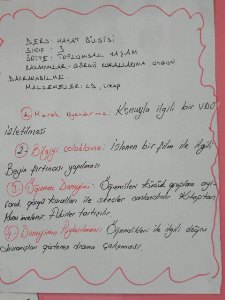 DERS: HAYAT BİLGİSİ
SINIF: 3
ÜNİTE: TOPLUMSAL YAŞAM
KAZANIMLAR: GÖRGÜ KURALLARINA UYGUN
DAVRANABİLME
MALZEMELER: CD, kitap
1. Merak Uyandırma: Konuyla ilgili bir VDO
izletilmesi
2. Bilgiyi : İzlenen bir film ile ilgili
Beyin fırtınası yapılması
3. Öğrenci Deneyimi: Öğrencileri küçük gruplara ayı-
rarak görgü kuralları ile skeçler canlandırılır. Kitaptan
incelenir. Fikirler tartışılır.
4. Deneyimin Paylaşılması: Öğrencileri ile ilgili doğru
davranışları gösteren drama çalışması.